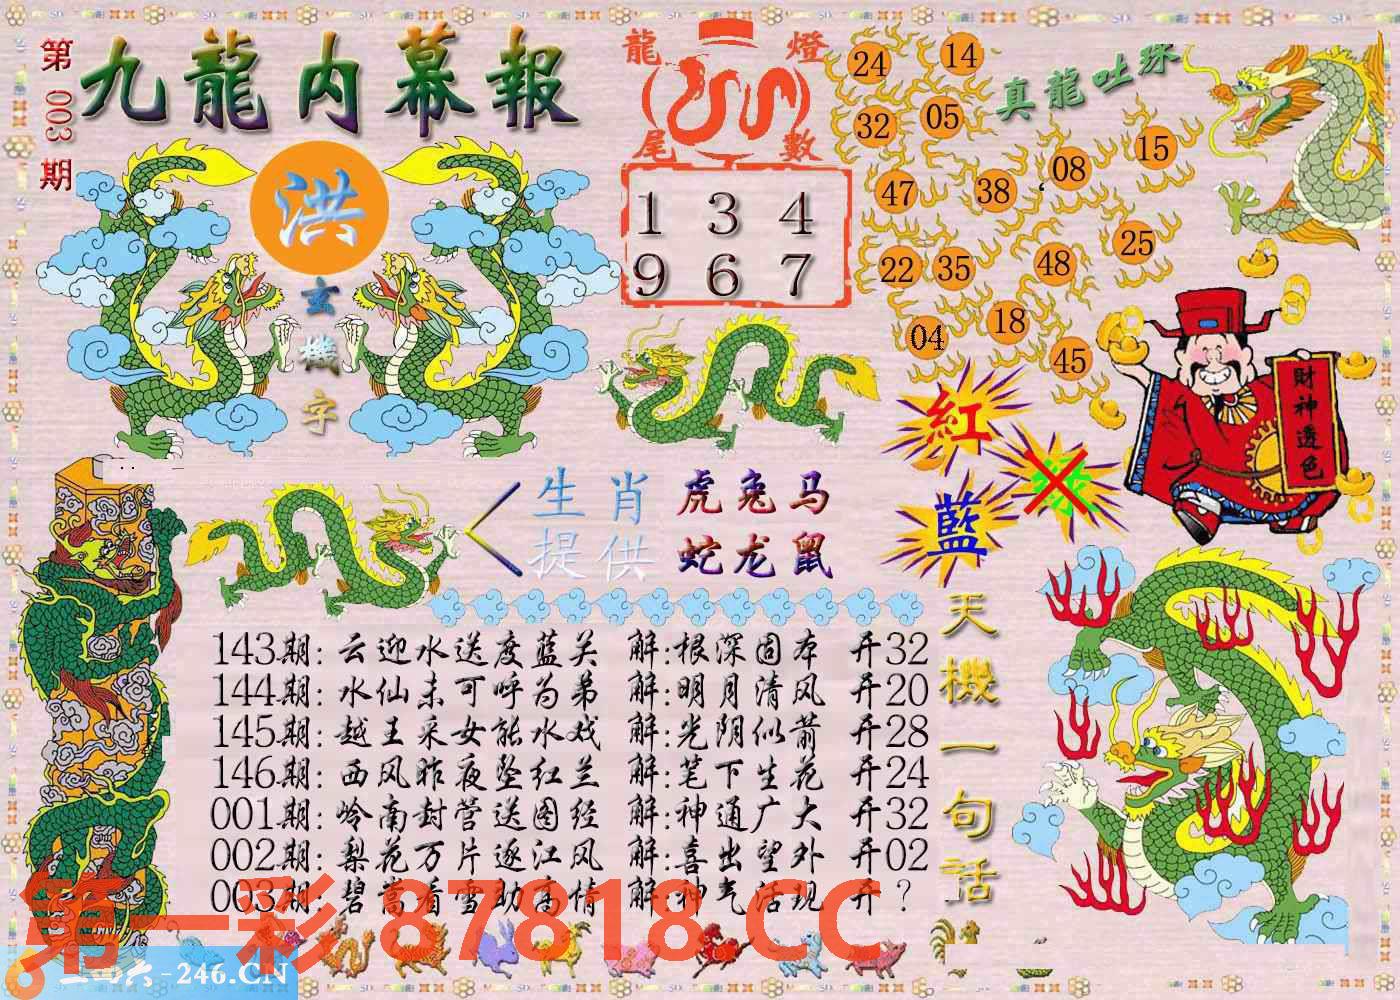 第003期
九龍内幕報
洪
玄機字
龍燈尾數
1 3 4
9 6 7
真龍吐珠
24
14
32
05
15
08
47
38
25
22
35
48
04
18
45
財神透色
紅
绿
藍
生肖提供
虎兔马
蛇龙鼠
天機一句話
143期:云迎水送度蓝关 解:根深固本 开32
144期:水仙未可呼为弟 解:明月清风 开20
145期:越王采女能水戏 解:光阴似箭 开28
146期:西风昨夜坠红兰 解:笔下生花 开24
001期:岭南封营送图经 解:神通广大 开32
002期:梨花万片逐江风 解:喜出望外 开02
003期:碧嵩看雪助高情 解:神气活现 开?
第一彩 87818.CC
二四六-246.CN